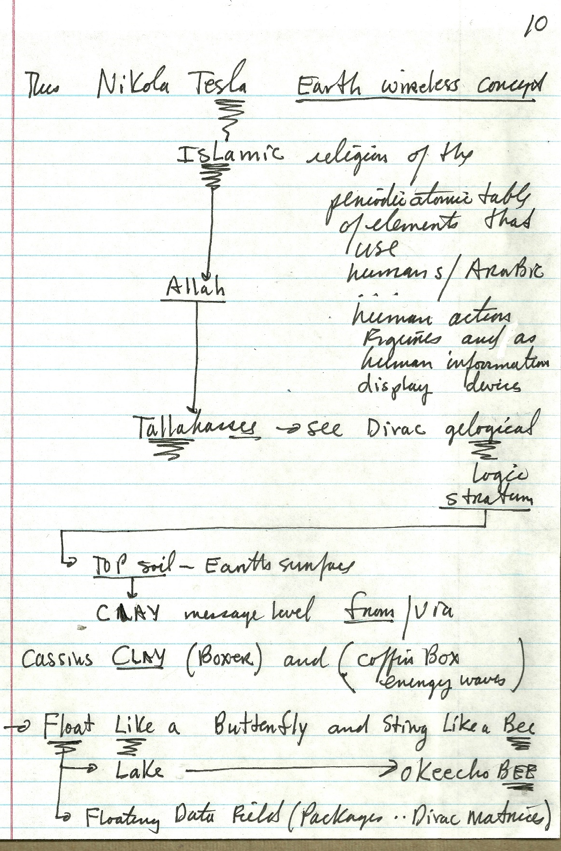 10
Thus Nikola Tesla Earth wireless concept
Islamic religion of the
periodic atomic table
of elements that
use
humans/Arabic
Allah
human action
figures and as
human information
display device
Tallahasses → see Dirac gelogical
logic
stratum
Top soil - Earth surface
CLAY message level from/via
Cassius CLAY (Boxer) and (coffin Box
energy waves)
→ Float Like a Butterfly and Sting Like a Bee
→ Lake → okeechoBEE
→ Floating Data Field (Packages .. Dirac Matrices)